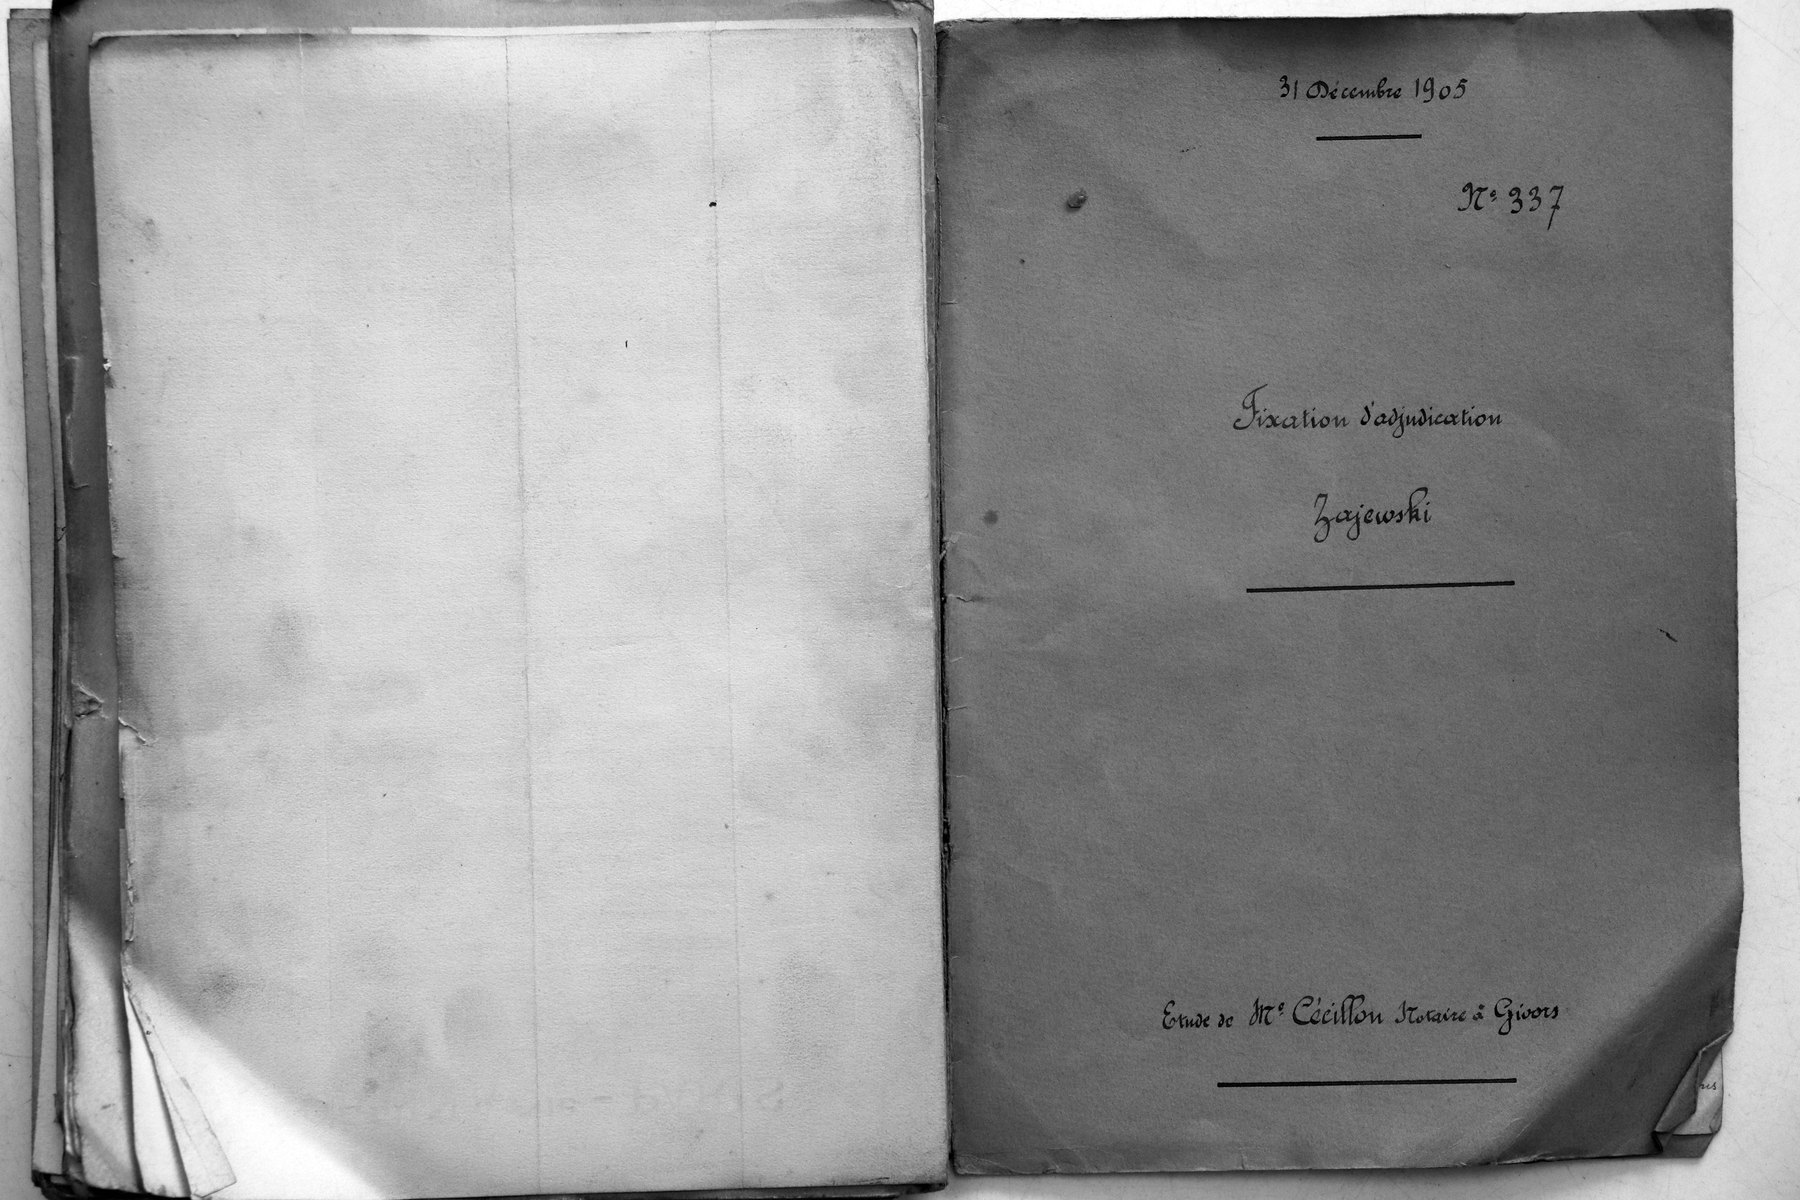 31 Décembre 1905
N° 337
Fixation d'adjudication
Zajewski
Etude de Mᵉ Cécillon Notaire à Givors